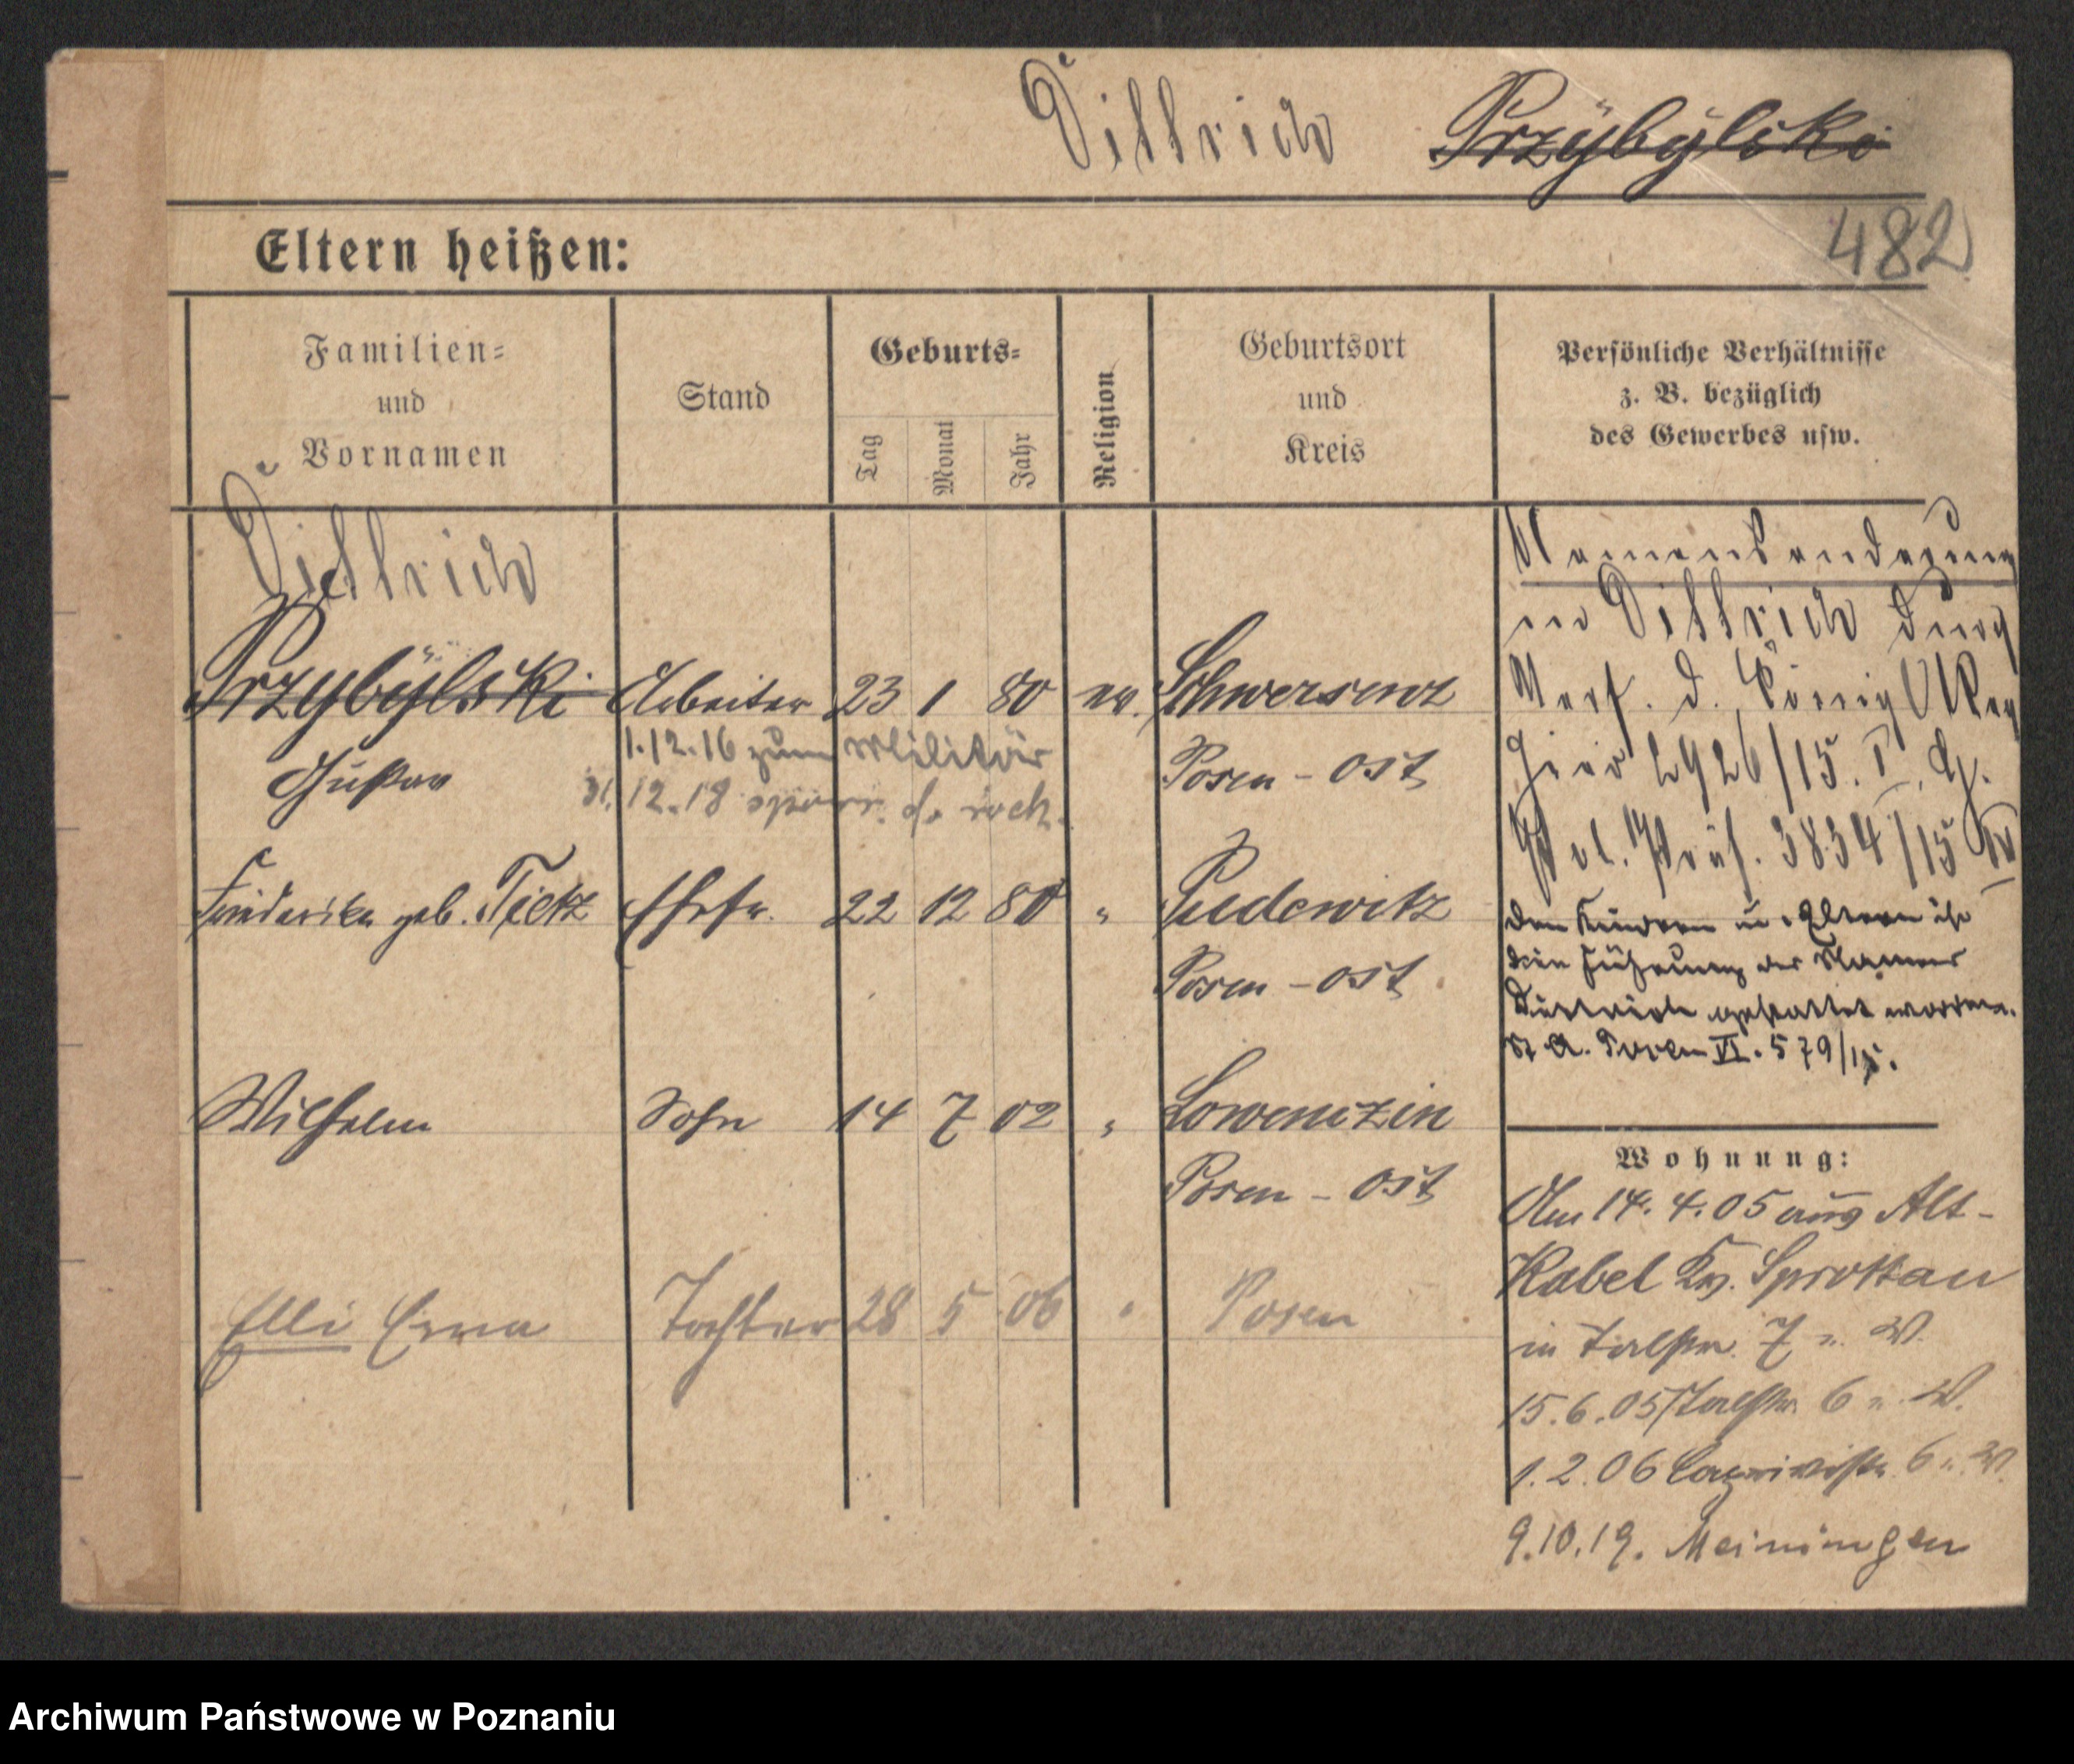 Dittrich Przÿbÿlski
482
Eltern heißen:
Familien-
und
Vornamen
Stand
Geburts-
Tag
Monat
Jahr
Religion
Geburtsort
und
Kreis
Persönliche Verhältnisse
z. B. bezüglich
des Gewerbes usw.
Dittrich
Przybÿlski Arbeiter 23 1 80 ev. Schwersenz
1.12.16 zum Militär
Gustav Posen - Ost
31.12.18
Friederike geb. Tietz Ehefr. 22 12 80 " Pudewitz
Posen - Ost
Wilhelm Sohn 14 7 02 " Lowenczin
Posen - Ost
Elli Erna Tochter 28 5 06 " Posen
Namensänderung
in Dittrich durch
Verf. d. Königl Reg
hier 2926/15. I. G.
Pol. Präs. 3834/15 IV
Den Kindern u. Eltern ist
die Führung des Namens
Dittrich gestattet worden.
St. A. Posen VI. 579/15.
Wohnung:
Am 14. 4. 05 aus Alt-
Kabel Kr. Sprottau
in Talstr. 7 " W.
15.6.05 Talstr. 6 " W.
1.2.06 6 " W.
9.10.19. Meiningen
Archiwum Państwowe w Poznaniu